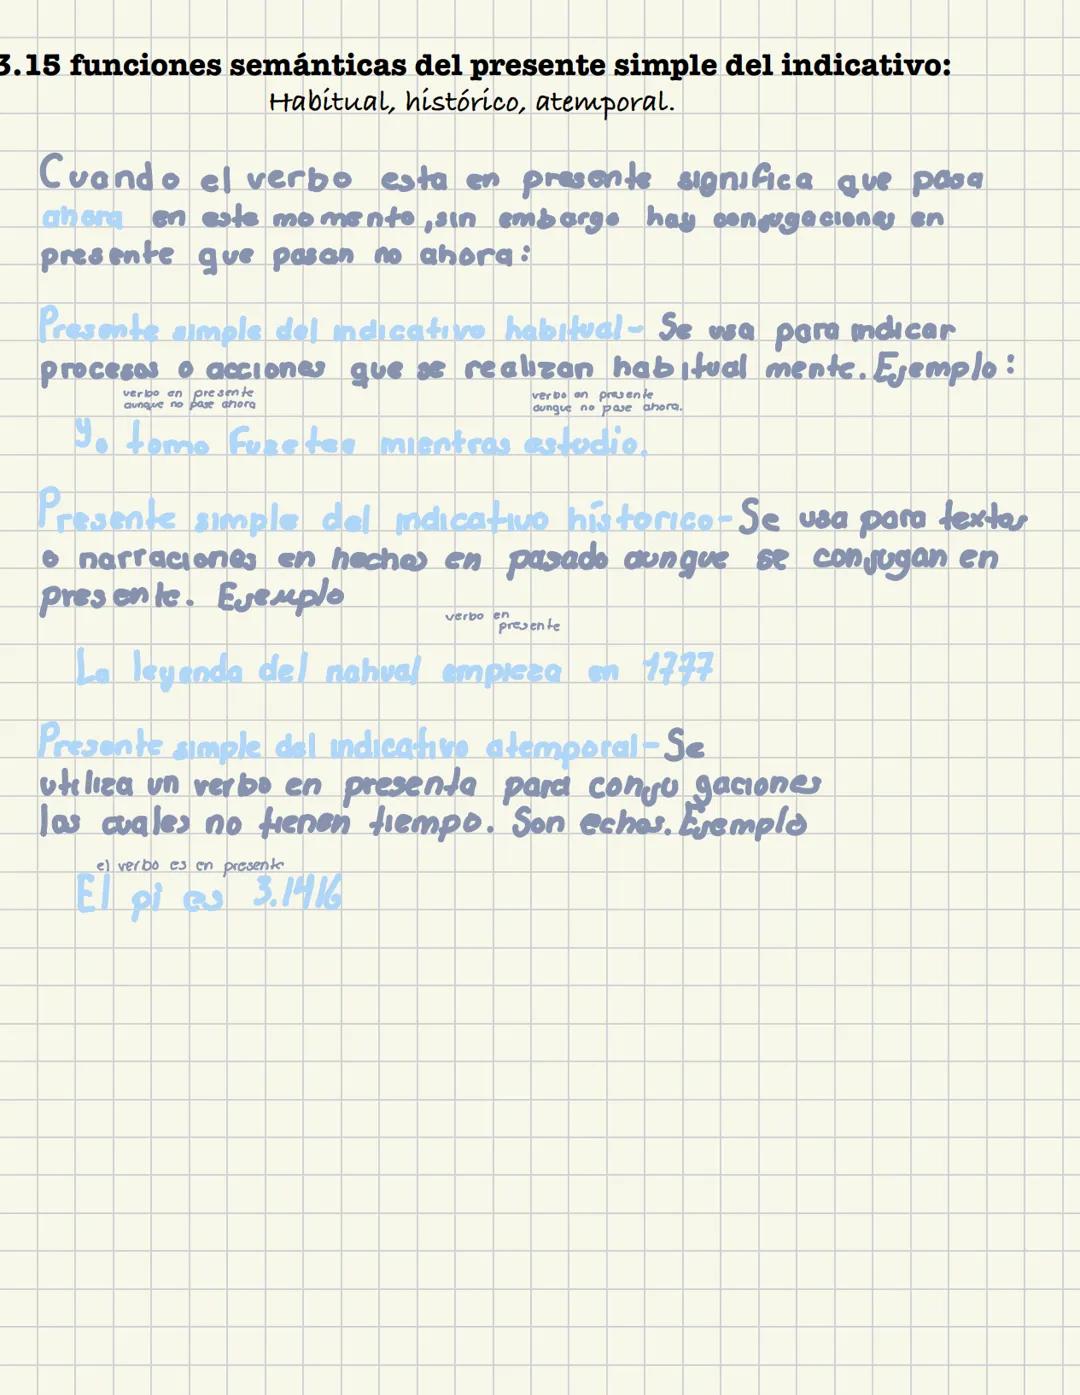 3.15 funciones semánticas del presente simple del indicativo:
Habitual, histórico, atemporal.
Cuando el verbo esta en presente significa que pasa
ahora en este momento, sin embargo hay conjugaciones en
presente que pasan no ahora:
Presente simple del indicativo habitual- Se usa para indicar
procesos o acciones que se realizan habitual mente. Ejemplo:
verbo en presente verbo en presente
aunque no pase ahora aunque no pase ahora.
Yo tomo Fuzetea mientras estudio.
Presente simple del indicativo historico- Se usa para textos
o narraciones en hechos en pasado aunque se conjugan en
presente. Ejemplo
verbo en
presente
La leyenda del nahual empieza en 1777
Presente simple del indicativo atemporal- Se
utiliza un verbo en presenta para conju gaciones
las cuales no tienen tiempo. Son echos. Ejemplo
el verbo es en presente
El pi es 3.1416